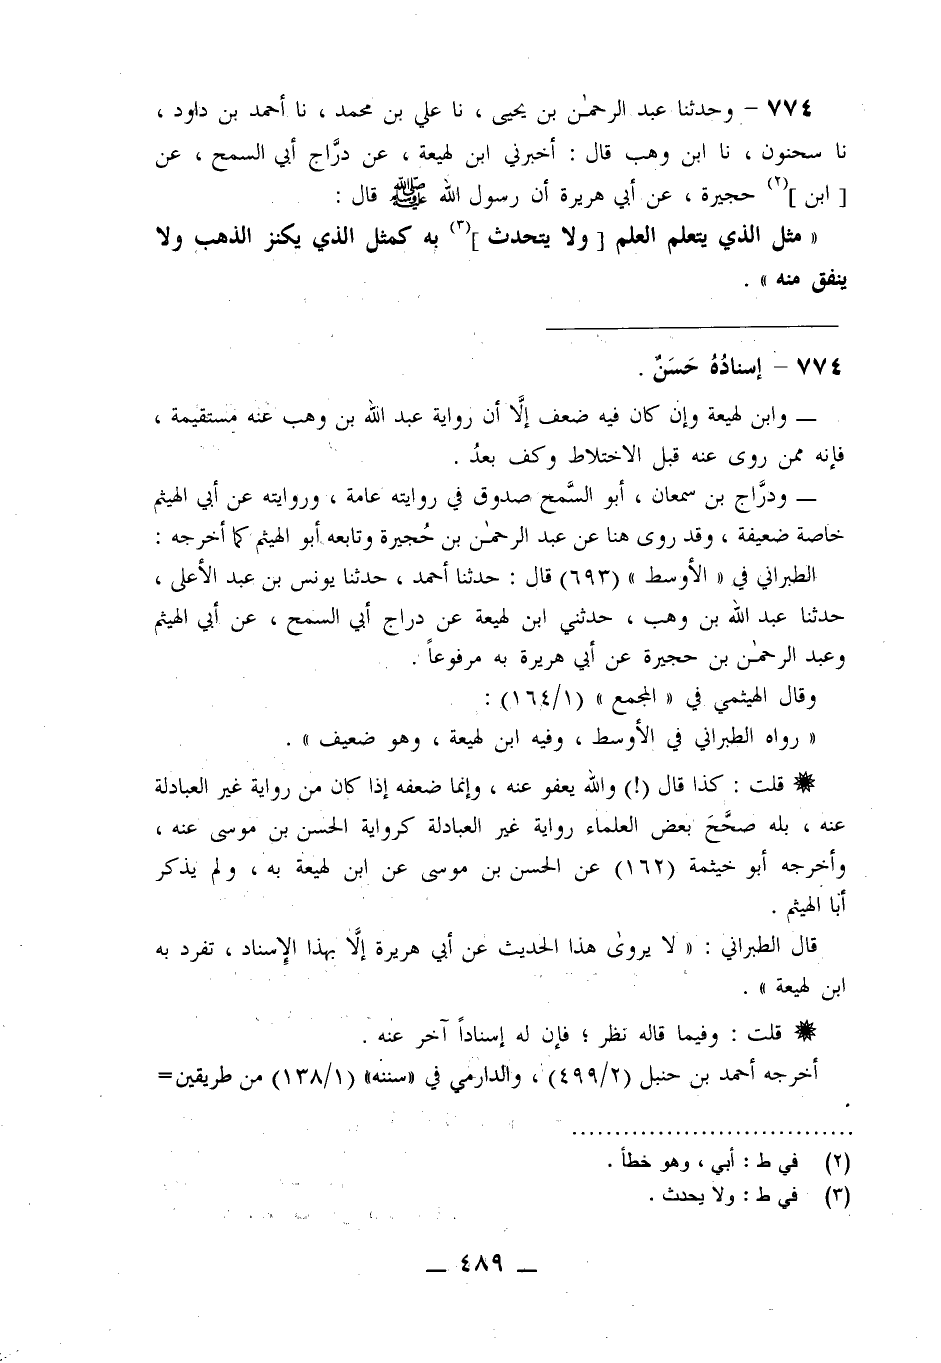 ٧٧٤ - وحدثنا عبد الرحمٰن بن يحيى ، نا علي بن محمد ، نا أحمد بن داود ،
نا سحنون ، نا ابن وهب قال : أخبرني ابن لهيعة ، عن درَّاج أبي السمح ، عن
[ ابن ](٢) حجيرة ، عن أبي هريرة أن رسول الله ﷺ قال :
« مثل الذي يتعلم العلم [ ولا يتحدث ](٣) به كمثل الذي يكنز الذهب ولا
ينفق منه » .
٧٧٤ - إسنادُهُ حَسَنٌ .
— وابن لهيعة وإن كان فيه ضعف إلَّا أن رواية عبد الله بن وهب عنه مستقيمة ،
فإنه ممن روى عنه قبل الاختلاط وكف بعدُ .
— ودرَّاج بن سمعان ، أبو السَّمح صدوق في روايته عامة ، وروايته عن أبي الهيثم
خاصة ضعيفة ، وقد روى هنا عن عبد الرحمٰن بن حُجيرة وتابعه أبو الهيثم كما أخرجه :
الطبراني في « الأوسط » (٦٩٣) قال : حدثنا أحمد ، حدثنا يونس بن عبد الأعلى ،
حدثنا عبد الله بن وهب ، حدثني ابن لهيعة عن دراج أبي السمح ، عن أبي الهيثم
وعبد الرحمٰن بن حجيرة عن أبي هريرة به مرفوعاً .
وقال الهيثمي في « المجمع » (١٦٤/١) :
« رواه الطبراني في الأوسط ، وفيه ابن لهيعة ، وهو ضعيف » .
✹ قلت : كذا قال (!) والله يعفو عنه ، وإنما ضعفه إذا كان من رواية غير العبادلة
عنه ، بله صحَّحَ بعض العلماء رواية غير العبادلة كرواية الحسن بن موسى عنه ،
وأخرجه أبو خيثمة (١٦٢) عن الحسن بن موسى عن ابن لهيعة به ، ولم يذكر
أبا الهيثم .
قال الطبراني : « لا يروىٰ هذا الحديث عن أبي هريرة إلَّا بهذا الإسناد ، تفرد به
ابن لهيعة » .
✹ قلت : وفيما قاله نظر ؛ فإن له إسناداً آخر عنه .
أخرجه أحمد بن حنبل (٤٩٩/٢) ، والدارمي في «سننه» (١٣٨/١) من طريقين=
(٢) في ط : أبي ، وهو خطأ .
(٣) في ط : ولا يحدث .
— ٤٨٩ —